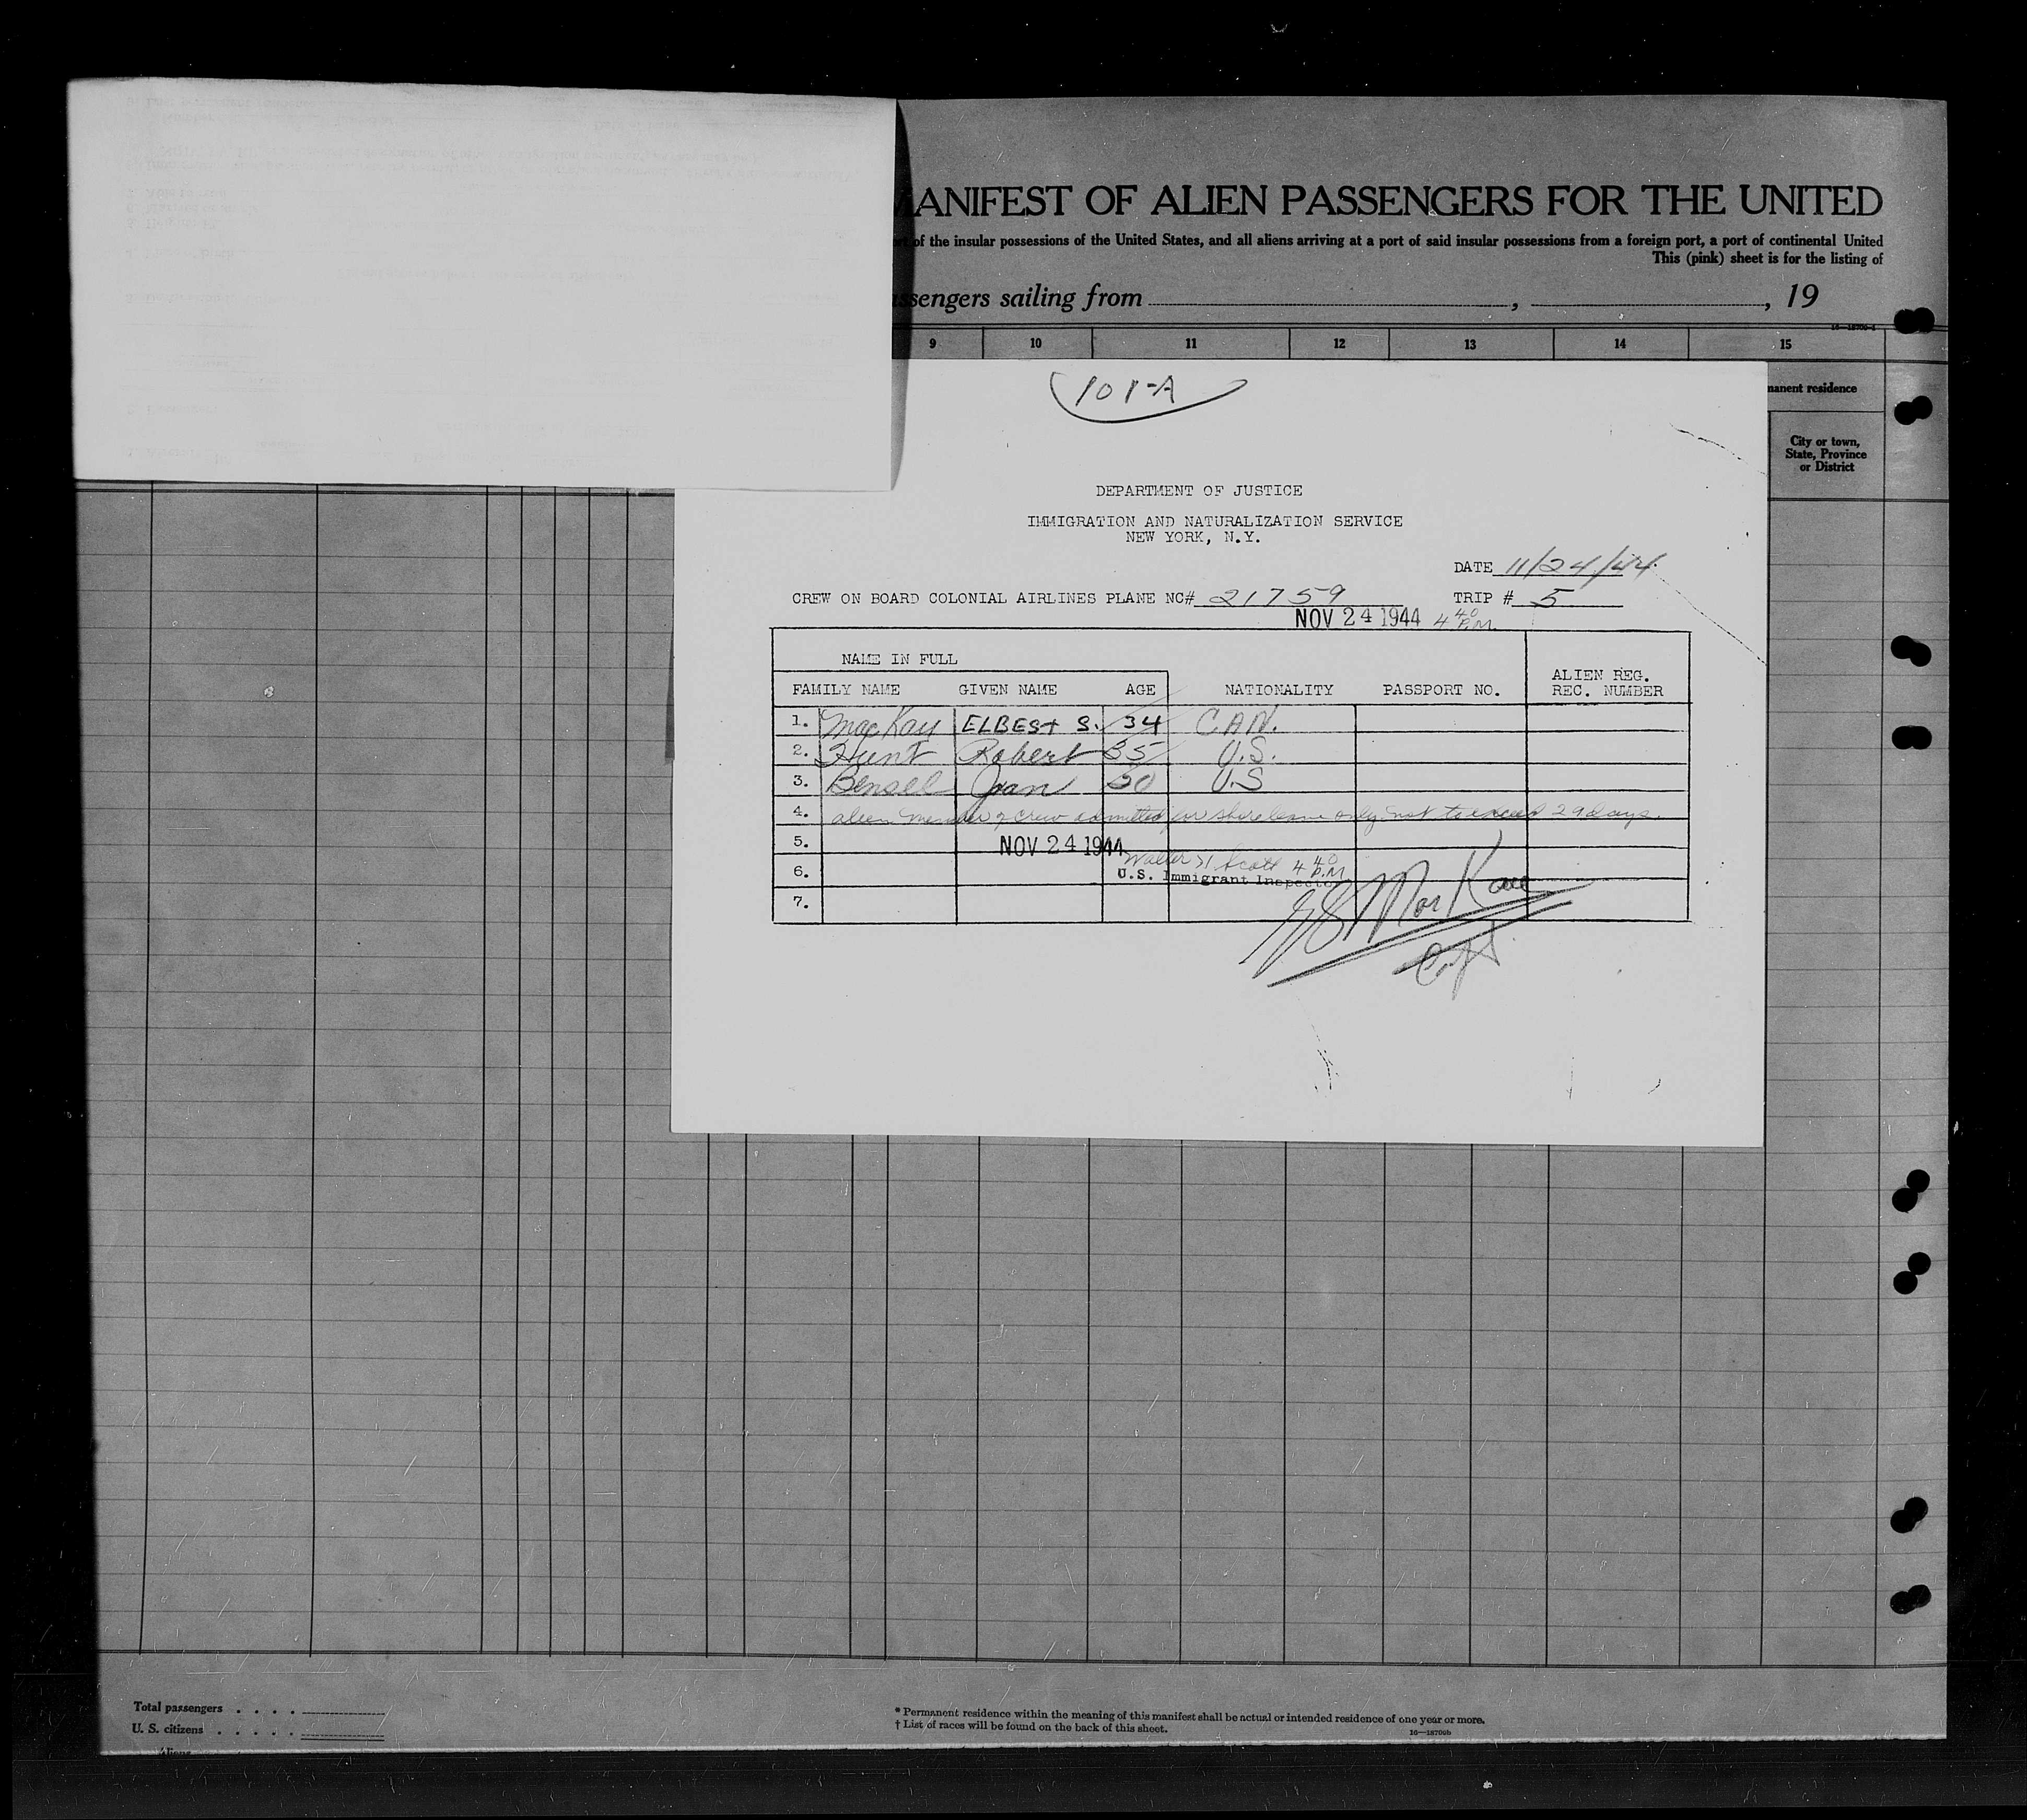 MANIFEST OF ALIEN PASSENGERS FOR THE UNITED
of the insular possessions of the United States, and all aliens arriving at a port of said insular possessions from a foreign port, a port of continental United
This (pink) sheet is for the listing of
ssengers sailing from , , 19
9 10 11 12 13 14 15
manent residence
City or town,
State, Province
or District
101-A
DEPARTMENT OF JUSTICE
IMMIGRATION AND NATURALIZATION SERVICE
NEW YORK, N.Y.
DATE 11/24/44
CREW ON BOARD COLONIAL AIRLINES PLANE NC# 21759 TRIP # 5
NOV 24 1944 4 40 P.M.
NAME IN FULL
ALIEN REG.
FAMILY NAME GIVEN NAME AGE NATIONALITY PASSPORT NO. REC. NUMBER
1. MacKay ELBEST S. 34 CAN.
2. Hunt Robert 35 U.S.
3. Bensel Jean 20 U.S
4. alien member of crew admitted for shore leave only not to exceed 29 days.
5. NOV 24 1944
6. Walter Scott 4 40 P.M
U.S. Immigrant Inspector
7. ES MacKay
Capt
Total passengers . . . .
U. S. citizens . . . . .
Aliens
* Permanent residence within the meaning of this manifest shall be actual or intended residence of one year or more.
† List of races will be found on the back of this sheet. 16—18706b